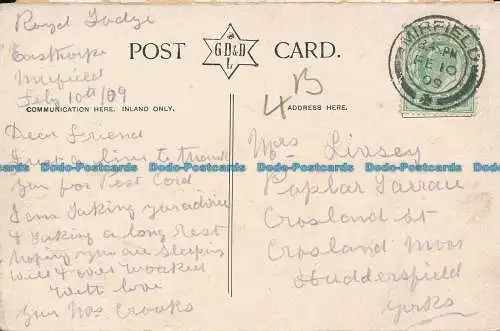 Royd Lodge
Easthorpe
Mirfield
Feby 10th/09
POST CARD.
GD&D
L
MIRFIELD
PM
FE 10
09
COMMUNICATION HERE. INLAND ONLY.
ADDRESS HERE.
4 B
Dear Friend
Just a line to thank
you for Post Card
I am Taking your advice
& Taking a long rest
hoping you are sleeping
Well & ever
With love
Your Mrs Crooks
Mrs Livsey
Poplar Tarrace
Crosland St
Crosland Moor
Huddersfield
Yorks
Dodo-Postcards Dodo-Postcards Dodo-Postcards Dodo-Postcards Dodo-Postcards